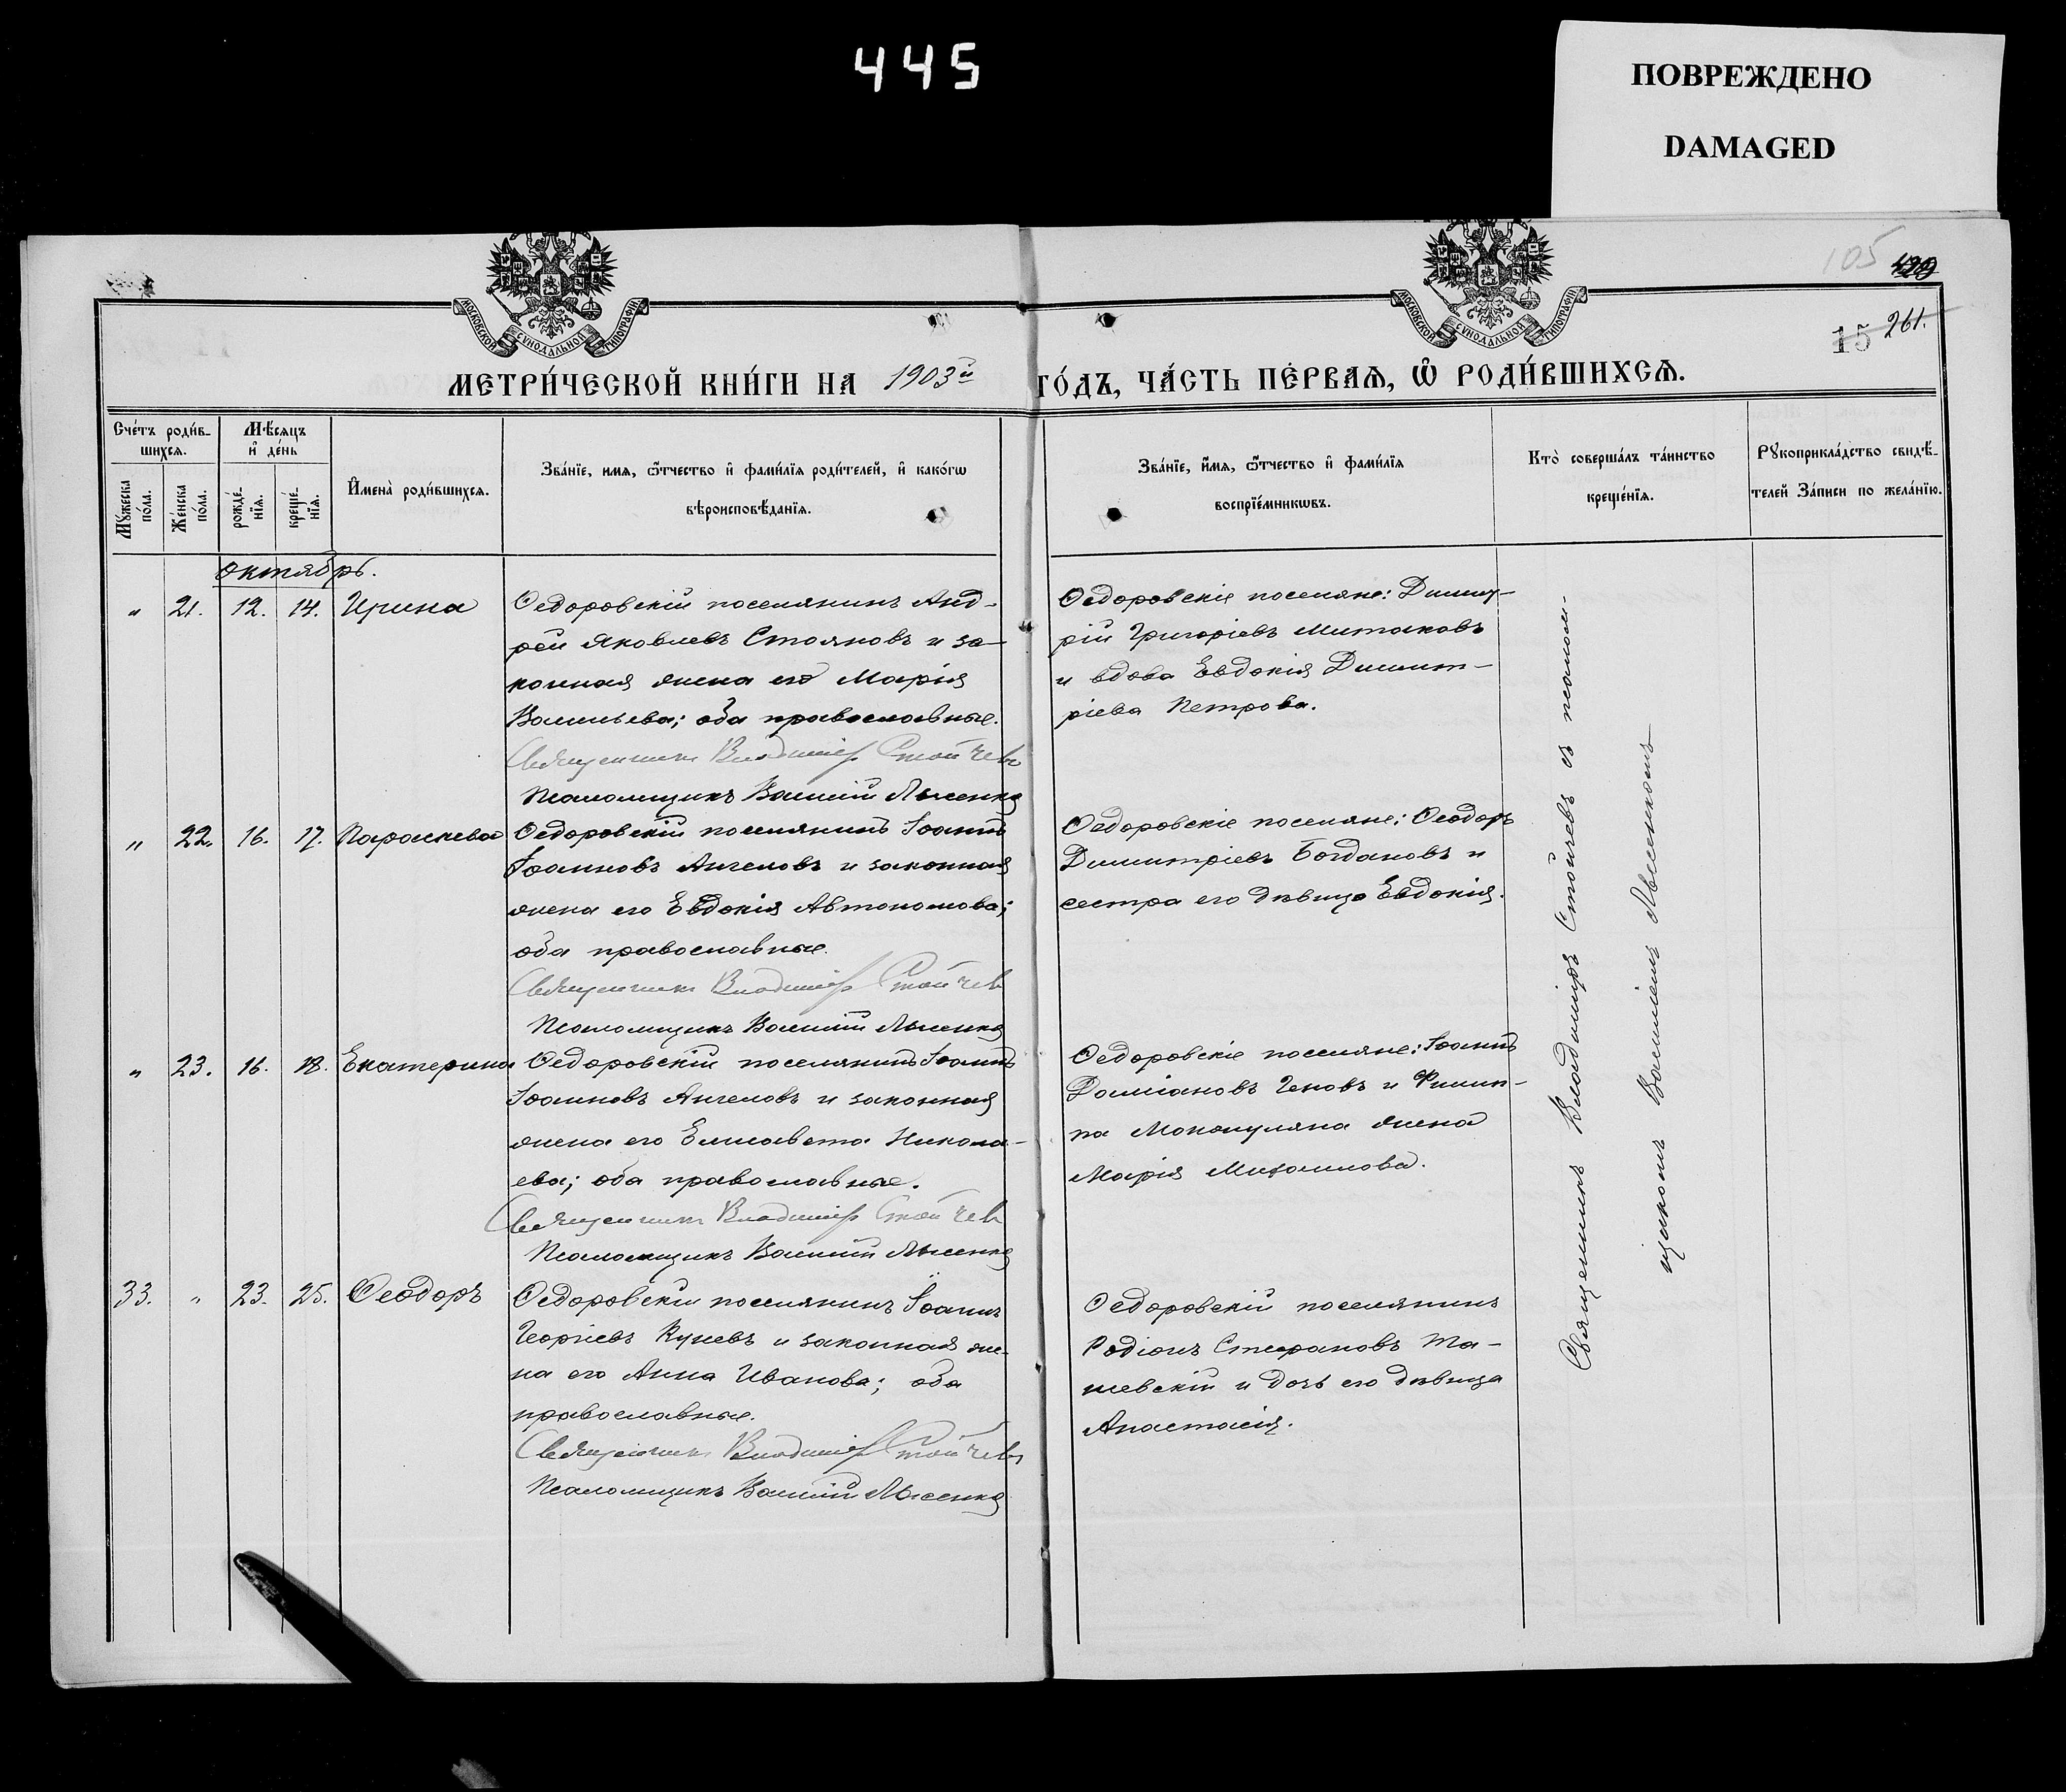 445
ПОВРЕЖДЕНО
DAMAGED
105
15 261.
МОСКОВСКОЙ СѴНОДАЛЬНОЙ ТИПОГРАФІИ
МОСКОВСКОЙ СѴНОДАЛЬНОЙ ТИПОГРАФІИ
МЕТРИ́ЧЕСКОЙ КНИ́ГИ НА 1903й ГО́ДЪ, ЧА́СТЬ ПЕ́РВАѦ, Ѽ РОДИ́ВШИХСѦ.
Сче́тъ роди́в-
шихсѧ.
Мꙋжеска по́ла.
Же́нска по́ла.
Мѣ́сѧцъ
и҆ де́нь
рожде́-
нїѧ.
креще́-
нїѧ.
И҆мена̀ роди́вшихсѧ.
Зва́нїе, имѧ, ѻ҆́тчество и҆ фами́лїѧ роди́телей, и҆ како́гѡ
вѣроисповѣ́данїѧ.
Зва́нїе, и҆́мѧ, ѻ҆́тчество и҆ фами́лїѧ
воспрїе́мникѡвъ.
Кто̀ соверша́лъ та́инство
креще́нїѧ.
Рꙋкоприкла́дство свидѣ́-
телей За́писи по жела́нїю.
Октябрь.
" 21. 12. 14. Ирина
Ѳедоровскій поселянинъ Анд-
рей Яковлевъ Стояновъ и за-
конная жена его Марія
Васильева; оба православные.
Священникъ Владиміръ Стойчевъ
Псаломщикъ Василій Лысенко
Ѳедоровскіе поселяне: Димит-
рій Григоріевъ Митаковъ
и вдова Евдокія Димит-
ріева Петрова.
" 22. 16. 17. Параскева
Ѳедоровскій поселянинъ Іоаннъ
Іоанновъ Ангеловъ и законная
жена его Евдокія Автономова;
оба православные.
Священникъ Владиміръ Стойчевъ
Псаломщикъ Василій Лысенко
Ѳедоровскіе поселяне: Ѳеодоръ
Димитріевъ Богдановъ и
сестра его дѣвица Евдокія.
" 23. 16. 18. Екатерина
Ѳедоровскій поселянинъ Іоаннъ
Іоанновъ Ангеловъ и законная
жена его Елисавета Никола-
ева; оба православные.
Священникъ Владиміръ Стойчевъ
Псаломщикъ Василій Лысенко
Ѳедоровскіе поселяне: Іоаннъ
Даміановъ Геновъ и Филип-
па жена
Марія Михаилова.
33. " 23. 25. Ѳеодоръ
Ѳедоровскій поселянинъ Іоаннъ
Георгіевъ Куневъ и законная же-
на его Анна Иванова; оба
православные.
Священникъ Владиміръ Стойчевъ
Псаломщикъ Василій Лысенко
Ѳедоровскій поселянинъ
Родіонъ Стефановъ Та-
шевскій и дочь его дѣвица
Анастасія.
Священникъ Владиміръ Стойчевъ съ псалом-
щикомъ Василіемъ Лысенкомъ